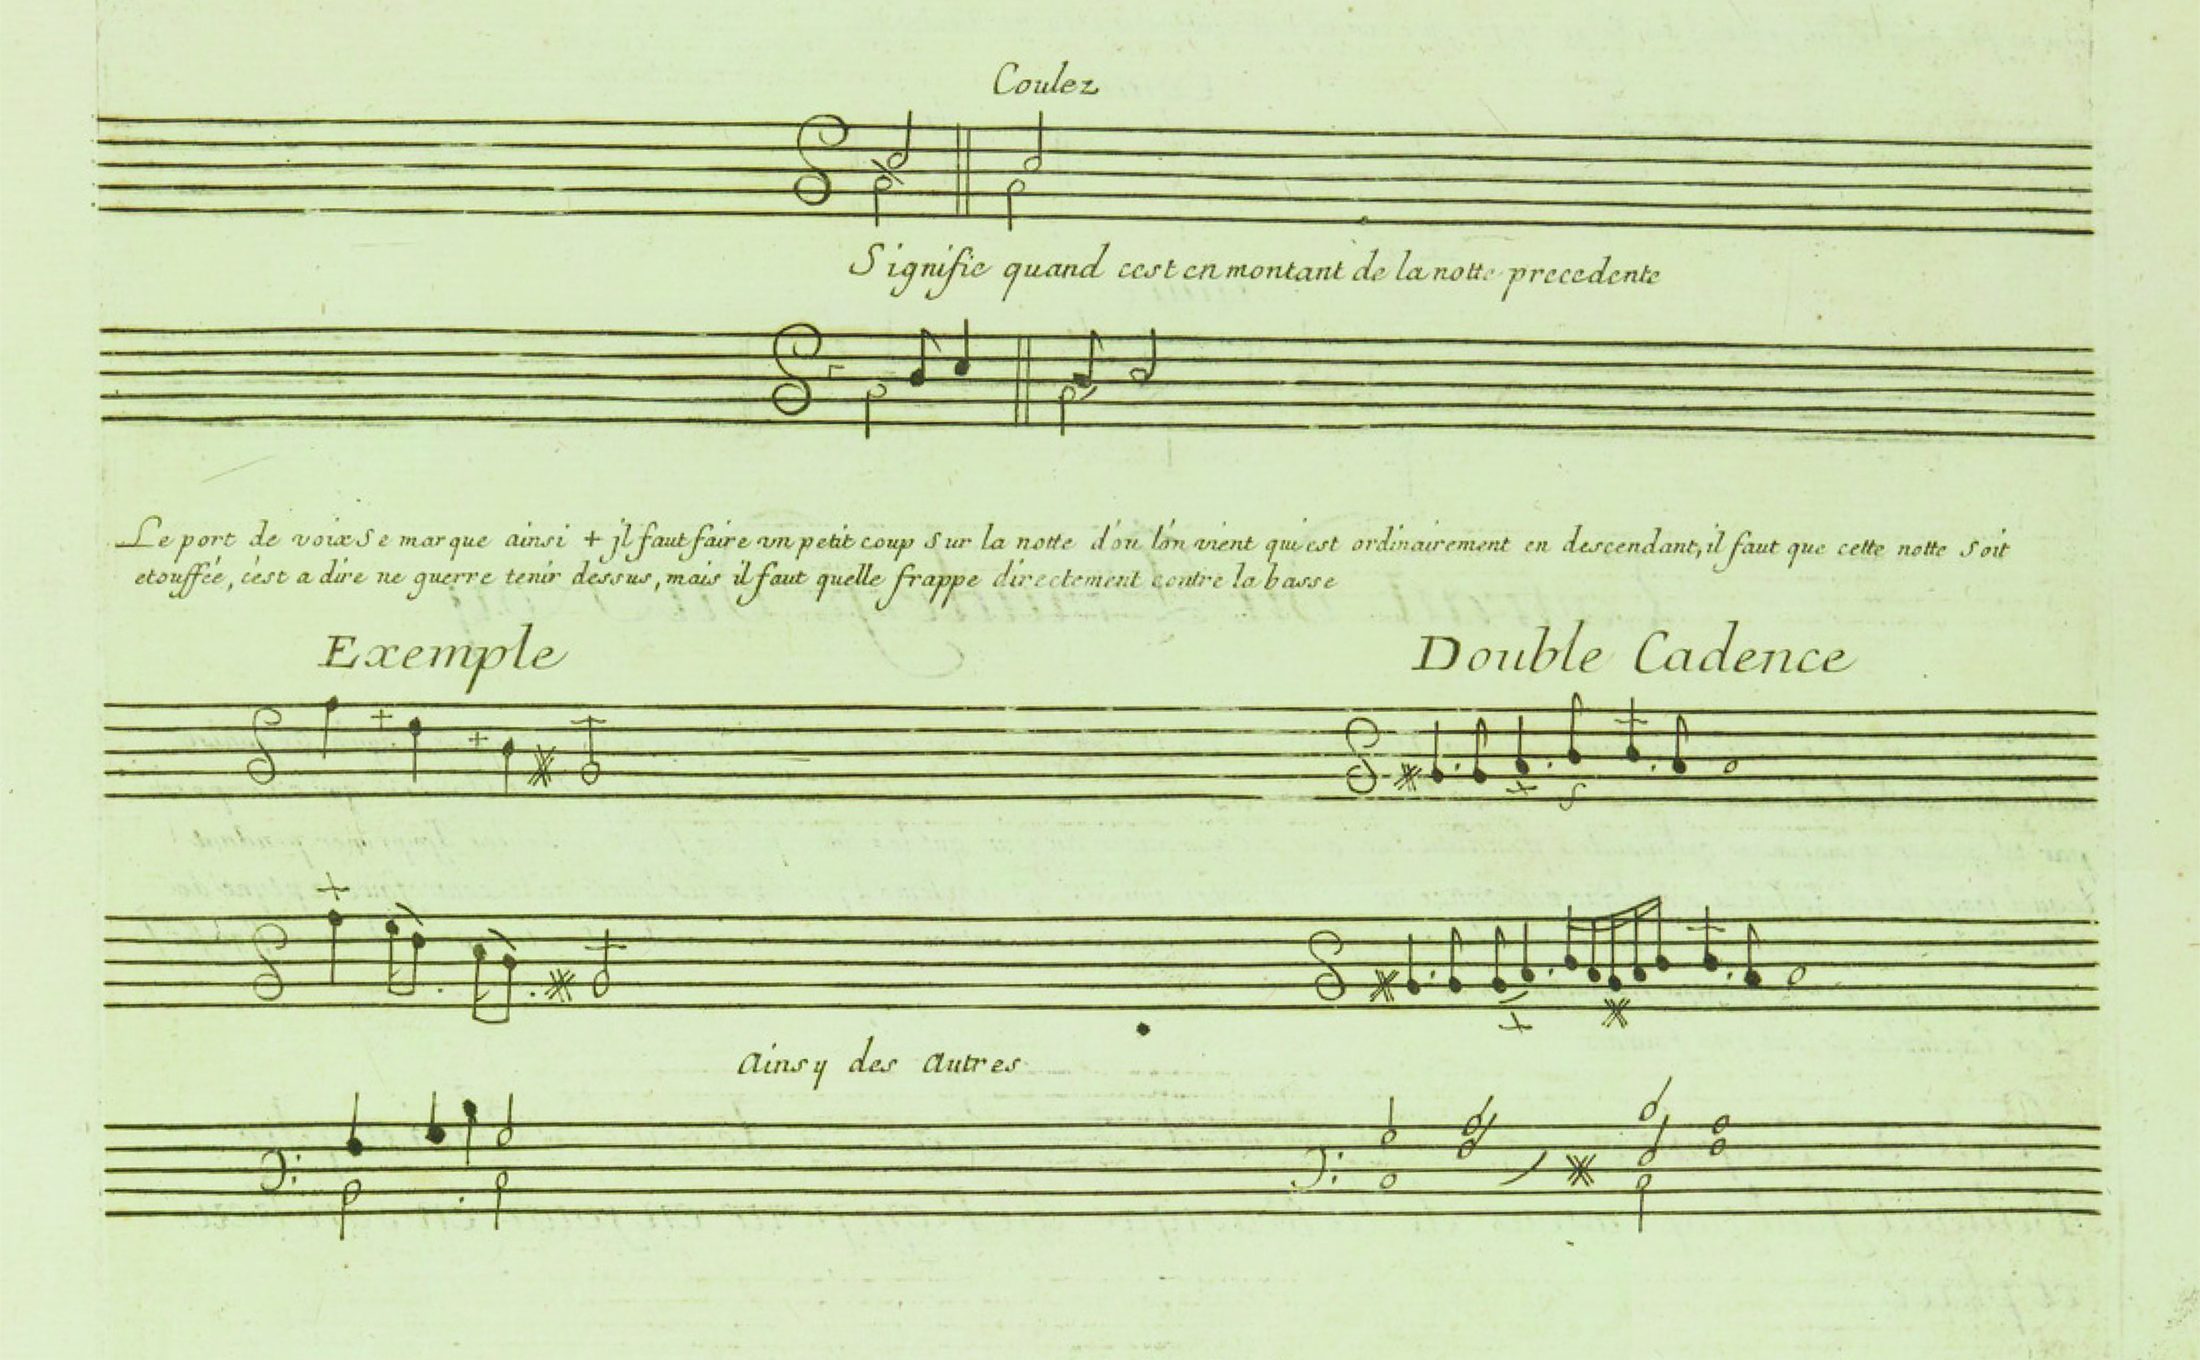 Coulez
Signifie quand cest en montant de la notte precedente
Le port de voix se marque ainsi + jl faut faire vn petit coup sur la notte d'ou lo'n vient qui est ordinairement en descendant, il faut que cette notte soit
etouffée, c'est a dire ne guerre tenir dessus, mais il faut quelle frappe directement contre la basse
Exemple
Double Cadence
Ainsy des autres